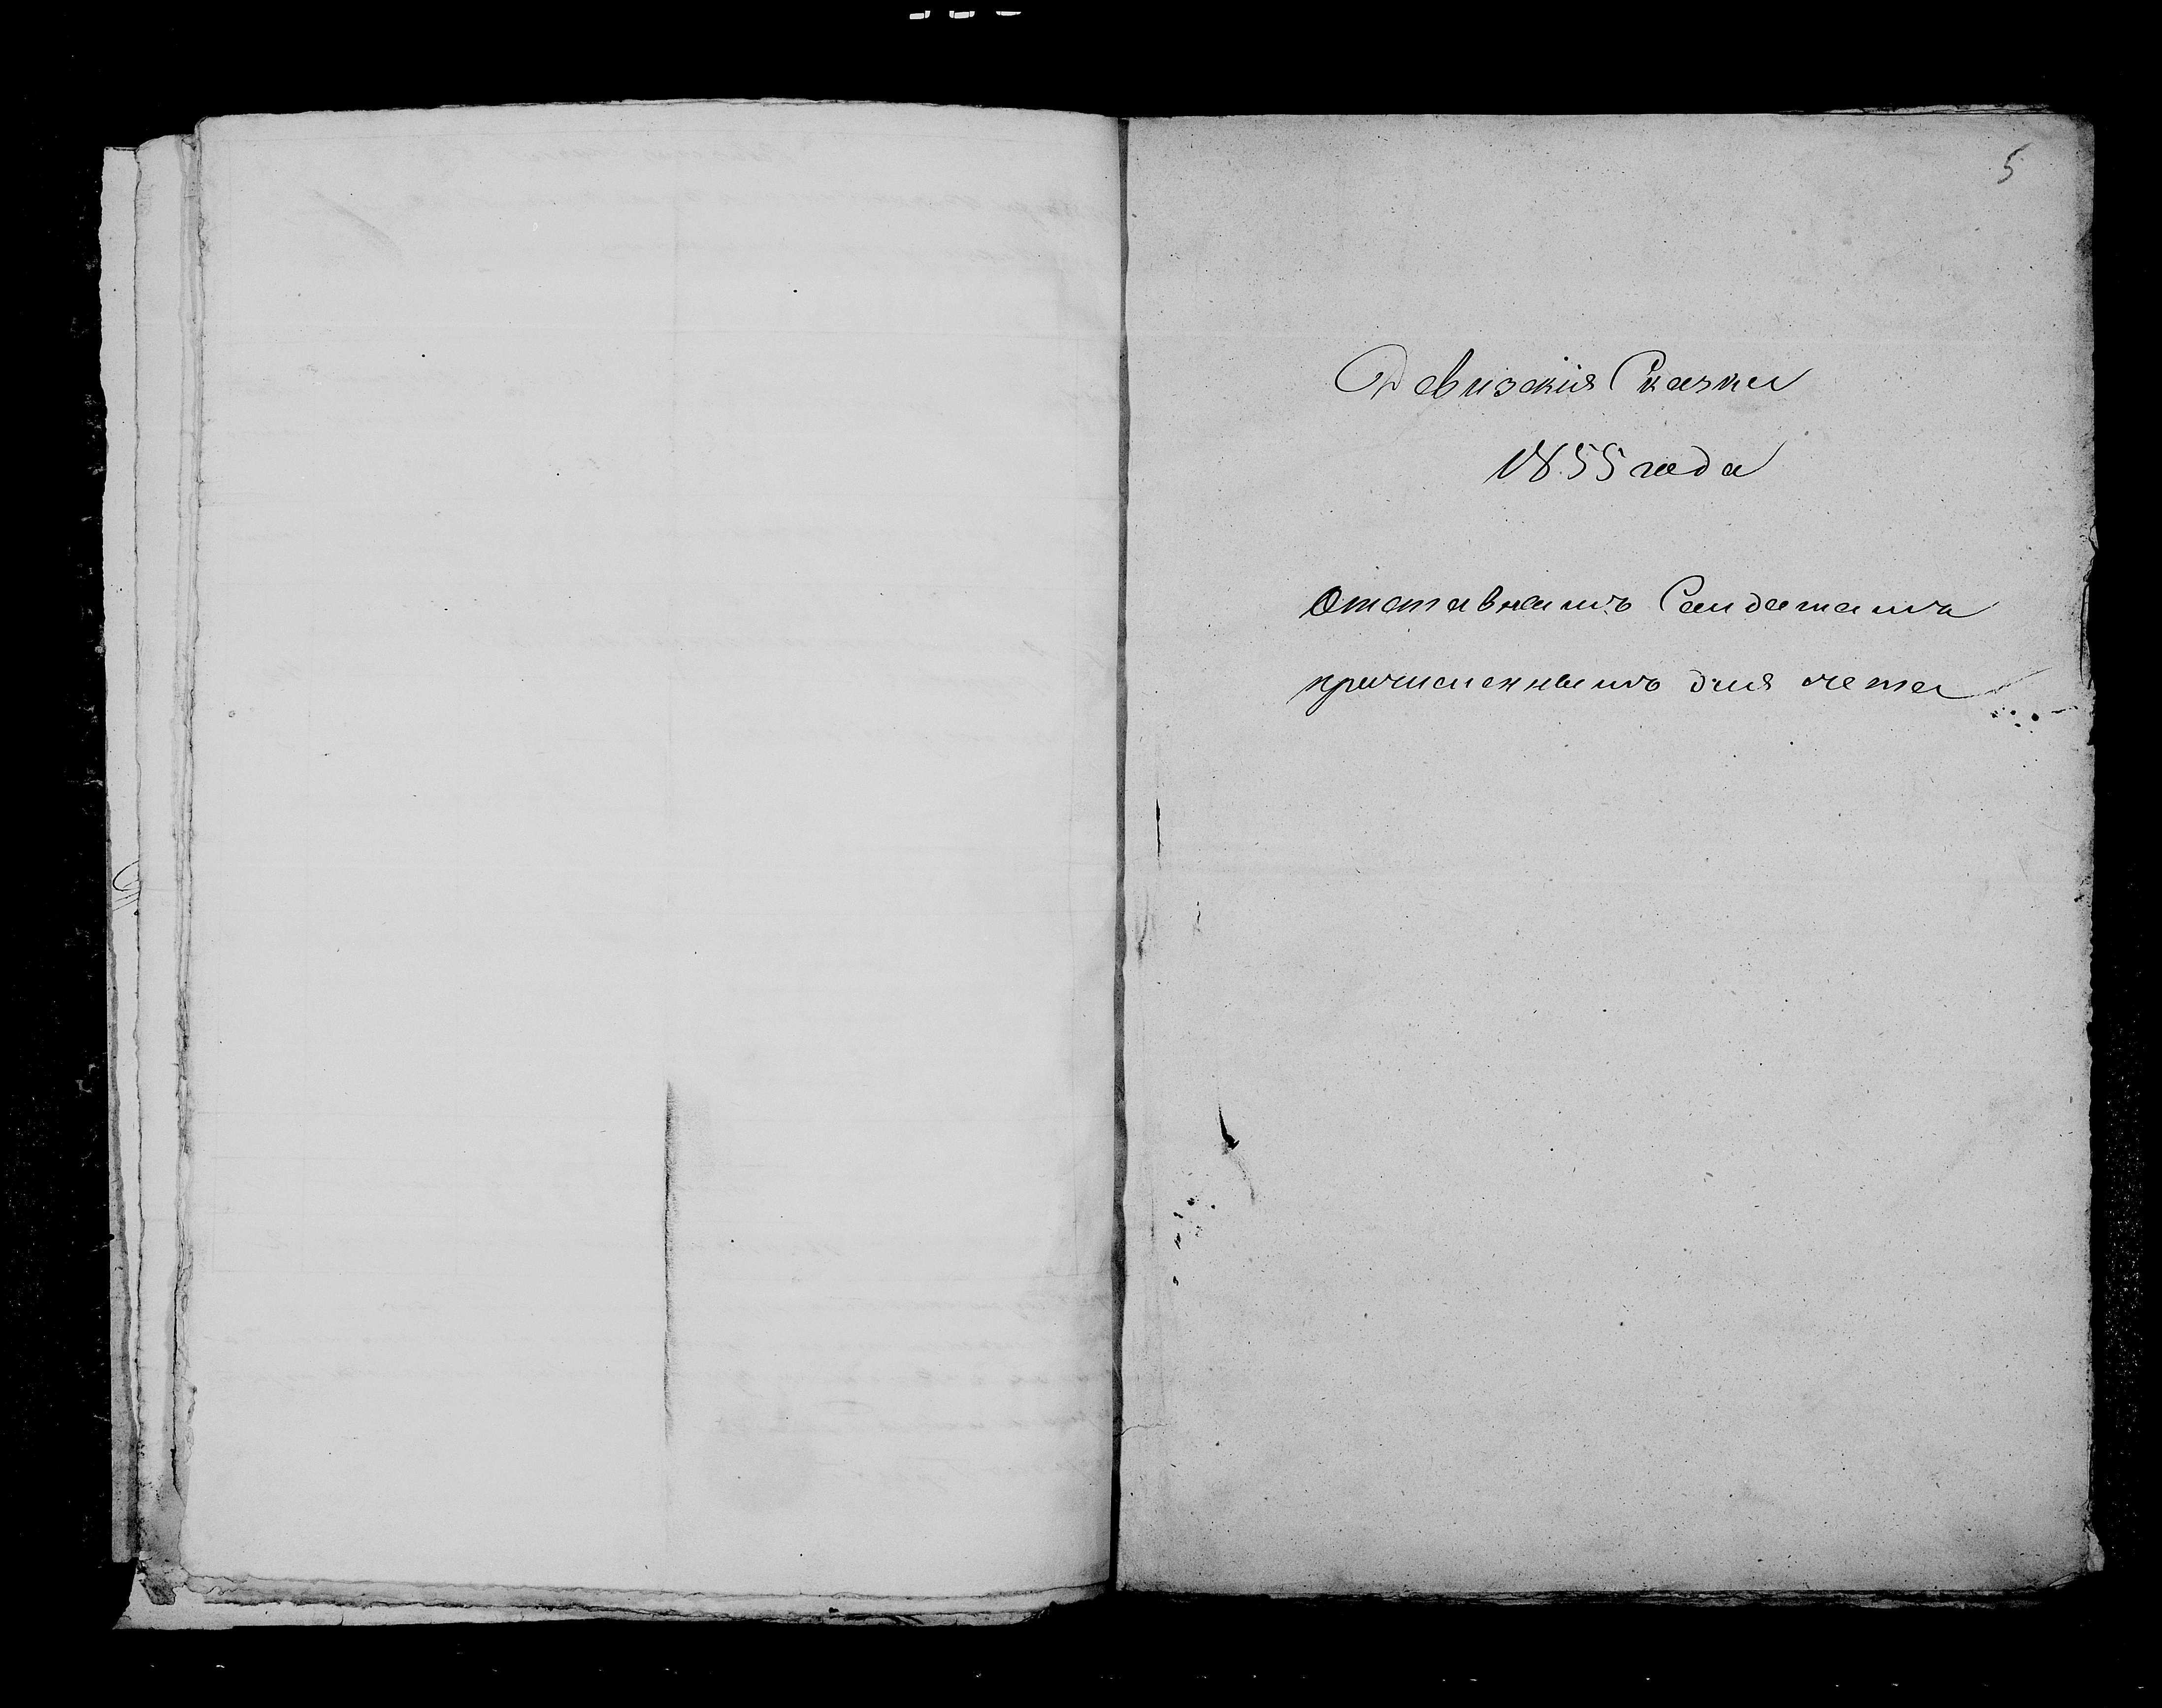 5
Ревизскія Сказки
1855 года
Отставнымъ Солдатамъ
причисленнымъ для счета